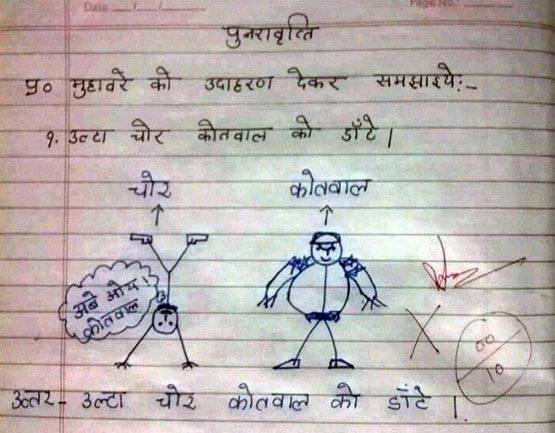 Date __/__/__ Page No.:
पुनरावृत्ति
प्र० मुहावरे को उदाहरण देकर समझाइये:-
१. उल्टा चोर कोतवाल को डाँटे।
चोर कोतवाल
अबे ओय!
कोतवाल
00
10
उत्तर- उल्टा चोर कोतवाल को डाँटे।